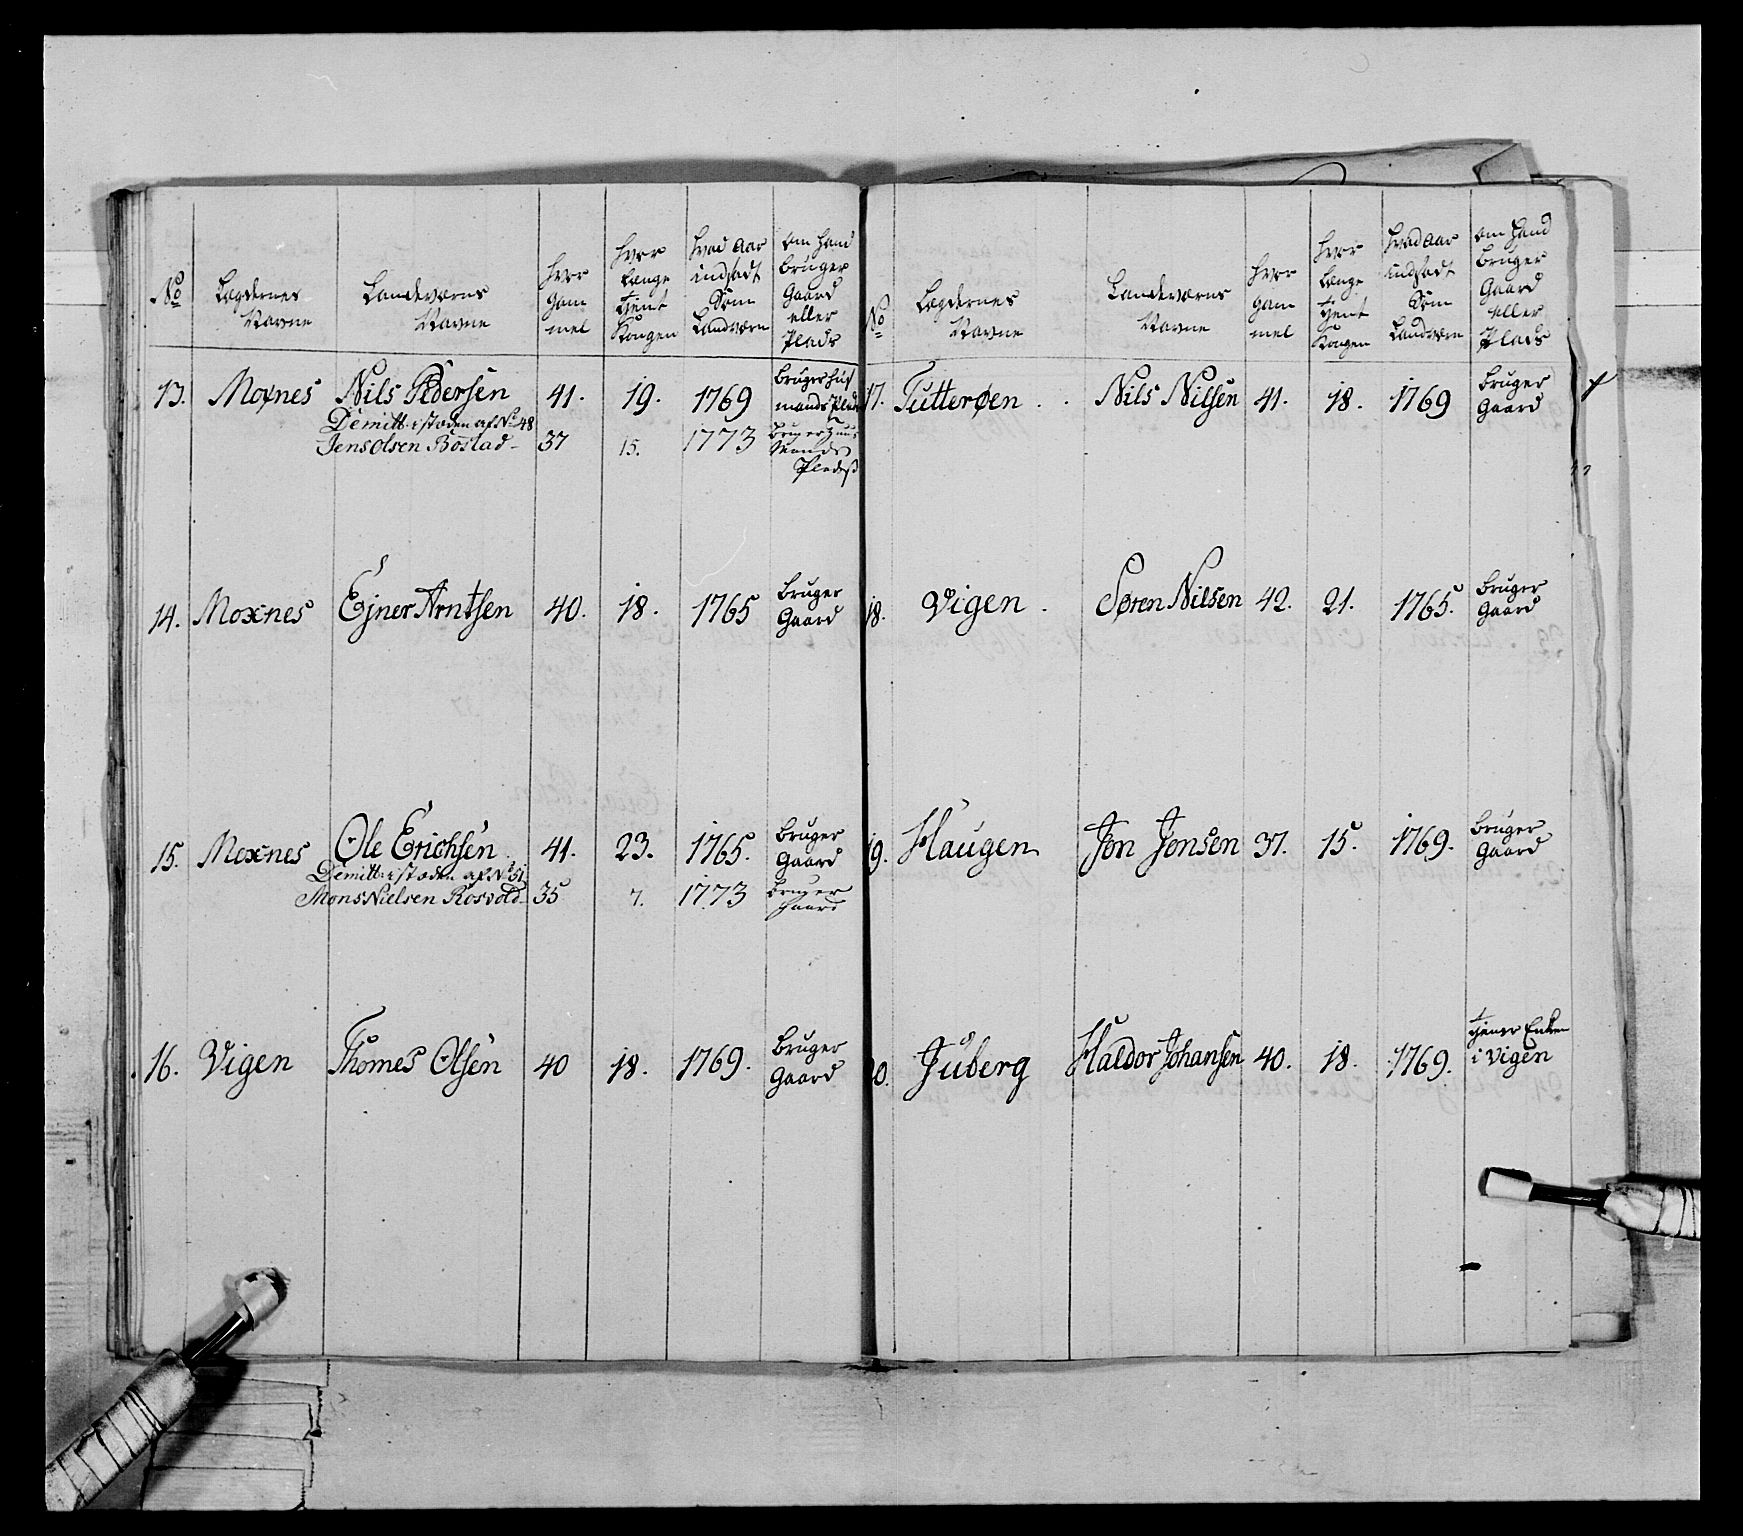 No
Lægdernes
Navne
Landeværns
Navne
hvor
gam
mel
hvor
længe
tient
Kongen
hvad Aar
indsadt
Som
Landværn
om hand
bruger
Gaard
eller
Plads
13. Moxnes Nils Pedersen 41. 19. 1769 bruger huus
mands Plads
Demitt: i stæden af No 48
Jens Olsen Bostad 37 15. 1773 bruger Huus
Mands
Pladß
14. Moxnes Ejner Arntsen 40. 18. 1765 bruger
Gaard
15. Moxnes Ole Erichsen 41. 23. 1765. bruger
Gaard
Demitt: i stæden af No 51
Mons Nielsen Rosvold 35 7. 1773 bruger
Gaard
16. Vigen Thomes Olsen 40 18. 1769. bruger
Gaard
No
Lægdernes
Navne
Landeværns
Navne
hvor
gam
mel
hvor
længe
tient
Kongen
hvad Aar
indsadt
Som
Landværn
om hand
bruger
Gaard
eller
Plads
17. Tutterøen Nils Nilsen 41. 18. 1769 bruger
Gaard
18. Vigen Søren Nilsen 42. 21. 1765. bruger
Gaard
19. Haugen Jon Jonsen 37. 15. 1769. bruger
Gaard
20. Juberg Haldor Johansen 40. 18. 1769. tiener Enken
i Vigen